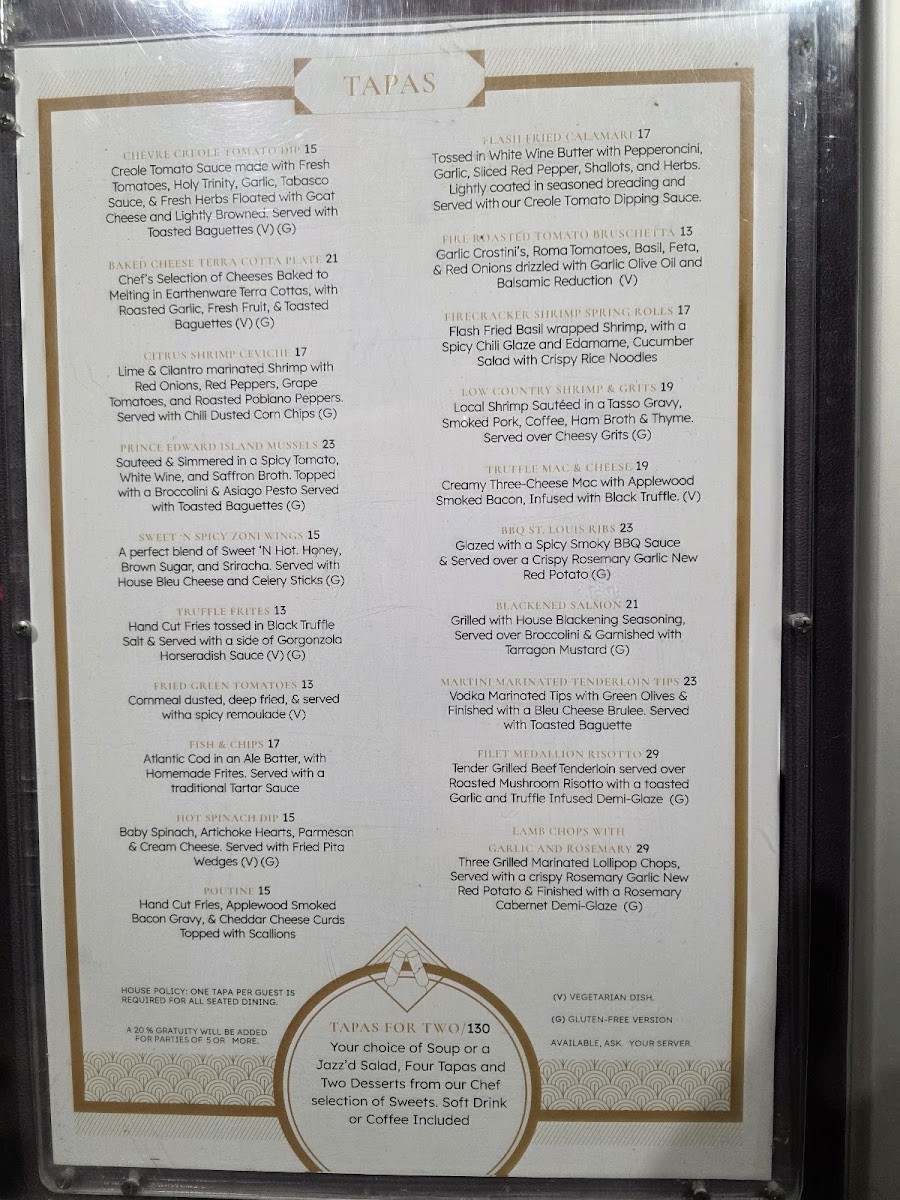 TAPAS
CHÈVRE CREOLE TOMATO DIP 15
Creole Tomato Sauce made with Fresh
Tomatoes, Holy Trinity, Garlic, Tabasco
Sauce, & Fresh Herbs Floated with Goat
Cheese and Lightly Browned. Served with
Toasted Baguettes (V) (G)
BAKED CHEESE TERRA COTTA PLATE 21
Chef's Selection of Cheeses Baked to
Melting in Earthenware Terra Cottas, with
Roasted Garlic, Fresh Fruit, & Toasted
Baguettes (V) (G)
CITRUS SHRIMP CEVICHE 17
Lime & Cilantro marinated Shrimp with
Red Onions, Red Peppers, Grape
Tomatoes, and Roasted Poblano Peppers.
Served with Chili Dusted Corn Chips (G)
PRINCE EDWARD ISLAND MUSSELS 23
Sauteed & Simmered in a Spicy Tomato,
White Wine, and Saffron Broth. Topped
with a Broccolini & Asiago Pesto Served
with Toasted Baguettes (G)
SWEET 'N SPICY ZONI WINGS 15
A perfect blend of Sweet 'N Hot. Honey,
Brown Sugar, and Sriracha. Served with
House Bleu Cheese and Celery Sticks (G)
TRUFFLE FRITES 13
Hand Cut Fries tossed in Black Truffle
Salt & Served with a side of Gorgonzola
Horseradish Sauce (V) (G)
FRIED GREEN TOMATOES 13
Cornmeal dusted, deep fried, & served
witha spicy remoulade (V)
FISH & CHIPS 17
Atlantic Cod in an Ale Batter, with
Homemade Frites. Served with a
traditional Tartar Sauce
HOT SPINACH DIP 15
Baby Spinach, Artichoke Hearts, Parmesan
& Cream Cheese. Served with Fried Pita
Wedges (V) (G)
POUTINE 15
Hand Cut Fries, Applewood Smoked
Bacon Gravy, & Cheddar Cheese Curds
Topped with Scallions
HOUSE POLICY: ONE TAPA PER GUEST IS
REQUIRED FOR ALL SEATED DINING.
A 20 % GRATUITY WILL BE ADDED
FOR PARTIES OF 5 OR MORE.
FLASH FRIED CALAMARI 17
Tossed in White Wine Butter with Pepperoncini,
Garlic, Sliced Red Pepper, Shallots, and Herbs.
Lightly coated in seasoned breading and
Served with our Creole Tomato Dipping Sauce.
FIRE ROASTED TOMATO BRUSCHETTA 13
Garlic Crostini's, Roma Tomatoes, Basil, Feta,
& Red Onions drizzled with Garlic Olive Oil and
Balsamic Reduction (V)
FIRECRACKER SHRIMP SPRING ROLLS 17
Flash Fried Basil wrapped Shrimp, with a
Spicy Chili Glaze and Edamame, Cucumber
Salad with Crispy Rice Noodles
LOW COUNTRY SHRIMP & GRITS 19
Local Shrimp Sautéed in a Tasso Gravy,
Smoked Pork, Coffee, Ham Broth & Thyme.
Served over Cheesy Grits (G)
TRUFFLE MAC & CHEESE 19
Creamy Three-Cheese Mac with Applewood
Smoked Bacon, Infused with Black Truffle. (V)
BBQ ST. LOUIS RIBS 23
Glazed with a Spicy Smoky BBQ Sauce
& Served over a Crispy Rosemary Garlic New
Red Potato (G)
BLACKENED SALMON 21
Grilled with House Blackening Seasoning,
Served over Broccolini & Garnished with
Tarragon Mustard (G)
MARTINI MARINATED TENDERLOIN TIPS 23
Vodka Marinated Tips with Green Olives &
Finished with a Bleu Cheese Brulee. Served
with Toasted Baguette
FILET MEDALLION RISOTTO 29
Tender Grilled Beef Tenderloin served over
Roasted Mushroom Risotto with a toasted
Garlic and Truffle Infused Demi-Glaze (G)
LAMB CHOPS WITH
GARLIC AND ROSEMARY 29
Three Grilled Marinated Lollipop Chops,
Served with a crispy Rosemary Garlic New
Red Potato & Finished with a Rosemary
Cabernet Demi-Glaze (G)
(V) VEGETARIAN DISH.
(G) GLUTEN-FREE VERSION
AVAILABLE, ASK YOUR SERVER.
TAPAS FOR TWO/130
Your choice of Soup or a
Jazz'd Salad, Four Tapas and
Two Desserts from our Chef
selection of Sweets. Soft Drink
or Coffee Included